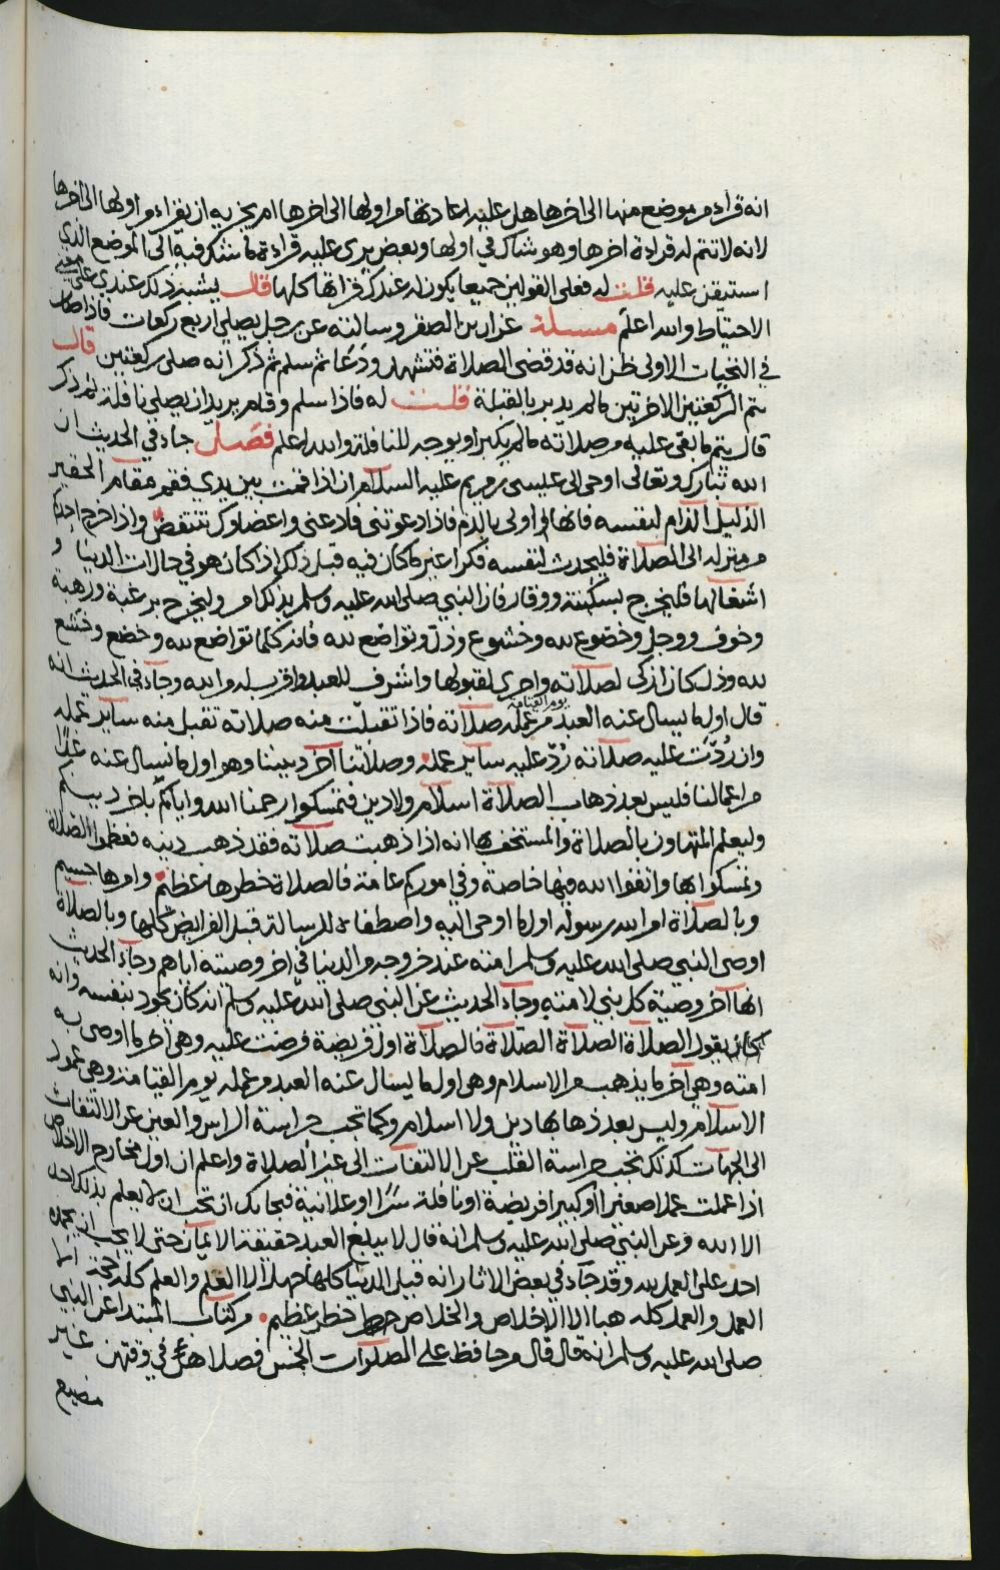 انه قراء من موضع منها الى اخرها هل عليه اعادتها من اولها الى اخرها ام يجزيه ان يقراء من اولها الى اخرها
لانه لا تتم له قراءة اخرها وهو شاك في اولها وبعض يرى عليه قراءة ما شك فيه الى الموضع الذي
استيقن عليه قلت له فعلى القولين جميعا يكون له عندك قراتها كلها قال يشبه ذلك عندي على معنى
الاحتياط والله اعلم مسئلة عزان بن الصقر وسالته عن رجل يصلي اربع ركعات فاذا صار
في التحيات الاولى ظن انه قد قضى الصلاة فتشهد ودعا ثم سلم ثم ذكر انه صلى ركعتين قال
يتم الركعتين الاخرتين ما لم يدبر بالقبلة قلت له فاذا سلم وقام يريد ان يصلي نافلة ثم ذكر
قال يتم ما بقى عليه من صلاته ما لم يكبر او يوجه للنافلة والله اعلم فصل جاء في الحديث ان
الله تبارك وتعالى اوحى الى عيسى بن مريم عليه السلام ان اذا قمت بين يدي فقم مقام الحقير
الذليل الذام لنفسه فانها اولى بالذم فاذا دعوتني فادعني واعضاوك تنتفض واذا خرج احدكم
من منزله الى الصلاة فليحدث لنفسه فكرا غير ما كان فيه قبل ذلك اذ كان هو في حالات الدنيا و
اشغالها فليخرج بسكينة ووقار فان النبي صلى الله عليه وسلم بذلك امر وليخرج برغبة ورهبة
وخوف ووجل وخضوع لله وخشوع وذل وتواضع لله فانه كلما تواضع لله وخضع وخشع
لله وذل كان ازكى لصلاته واحرى لقبولها واشرف للعبد واقرب له من الله وجاء في الحديث انه
قال اول ما يسال عنه العبد يوم القيامة من عمله صلاته فاذا تقبلت منه صلاته تقبل منه ساير عمله
وان رُدّت عليه صلاته رُدّ عليه ساير عمله وصلاتنا آخر ديننا وهو اول ما نسال عنه غدًا
من اعمالنا فليس بعد ذهاب الصلاة اسلام ولا دين فتمسكوا رحمنا الله واياكم باخر دينكم
وليعلم المتهاون بالصلاة والمستخف بها انه اذا ذهبت صلاته فقد ذهب دينه فعظموا الصلاة
وتمسكوا بها واتقوا الله فيها خاصة وفي اموركم عامة فالصلاة خطرها عظيم وامرها جسيم
وبالصلاة امر الله رسوله اول ما اوحى اليه واصطفاه للرسالة قبل الفرايض كلها وبالصلاة
اوصى النبي صلى الله عليه وسلم امته عند خروجه من الدنيا في اخر وصيته اياهم وجاء الحديث
انها آخر وصية كل نبي لامته وجاء الحديث عن النبي صلى الله عليه وسلم انه كان يجود بنفسه وانه
كان يقول الصلاة الصلاة الصلاة فالصلاة اول فريضة فرضت عليه وهي آخر ما اوصى به
امته وهي آخر ما يذهب من الاسلام وهي اول ما يسال عنه العبد من عمله يوم القيامة وهي عمود
الاسلام وليس بعد ذهابها دين ولا اسلام وكما تجب حراسة الراس والعين عن الالتفات
الى الجهات كذلك تجب حراسة القلب عن الالتفات الى غير الصلاة واعلم ان اول مخارج الاخلاص
اذا عملت عملا صغيرا او كبيرا فريضة او نافلة سرًا او علانية ان تحب ان لا يعلم بذلك احد
الا الله وعن النبي صلى الله عليه وسلم انه قال لا يبلغ العبد حقيقة الايمان حتى لا يحب ان يحمده
احد على العمل لله وقد جآء في بعض الاثار انه قيل الدنيا كلها جهل الا العلم والعلم كله حجة الا
العمل والعمل كله هبا الا الاخلاص والخلاص خطر عظيم ومن كتاب المبتدا عن النبي
صلى الله عليه وسلم انه قال من حافظ على الصلوات الخمس فصلاهن في وقتهن غير
مضيع